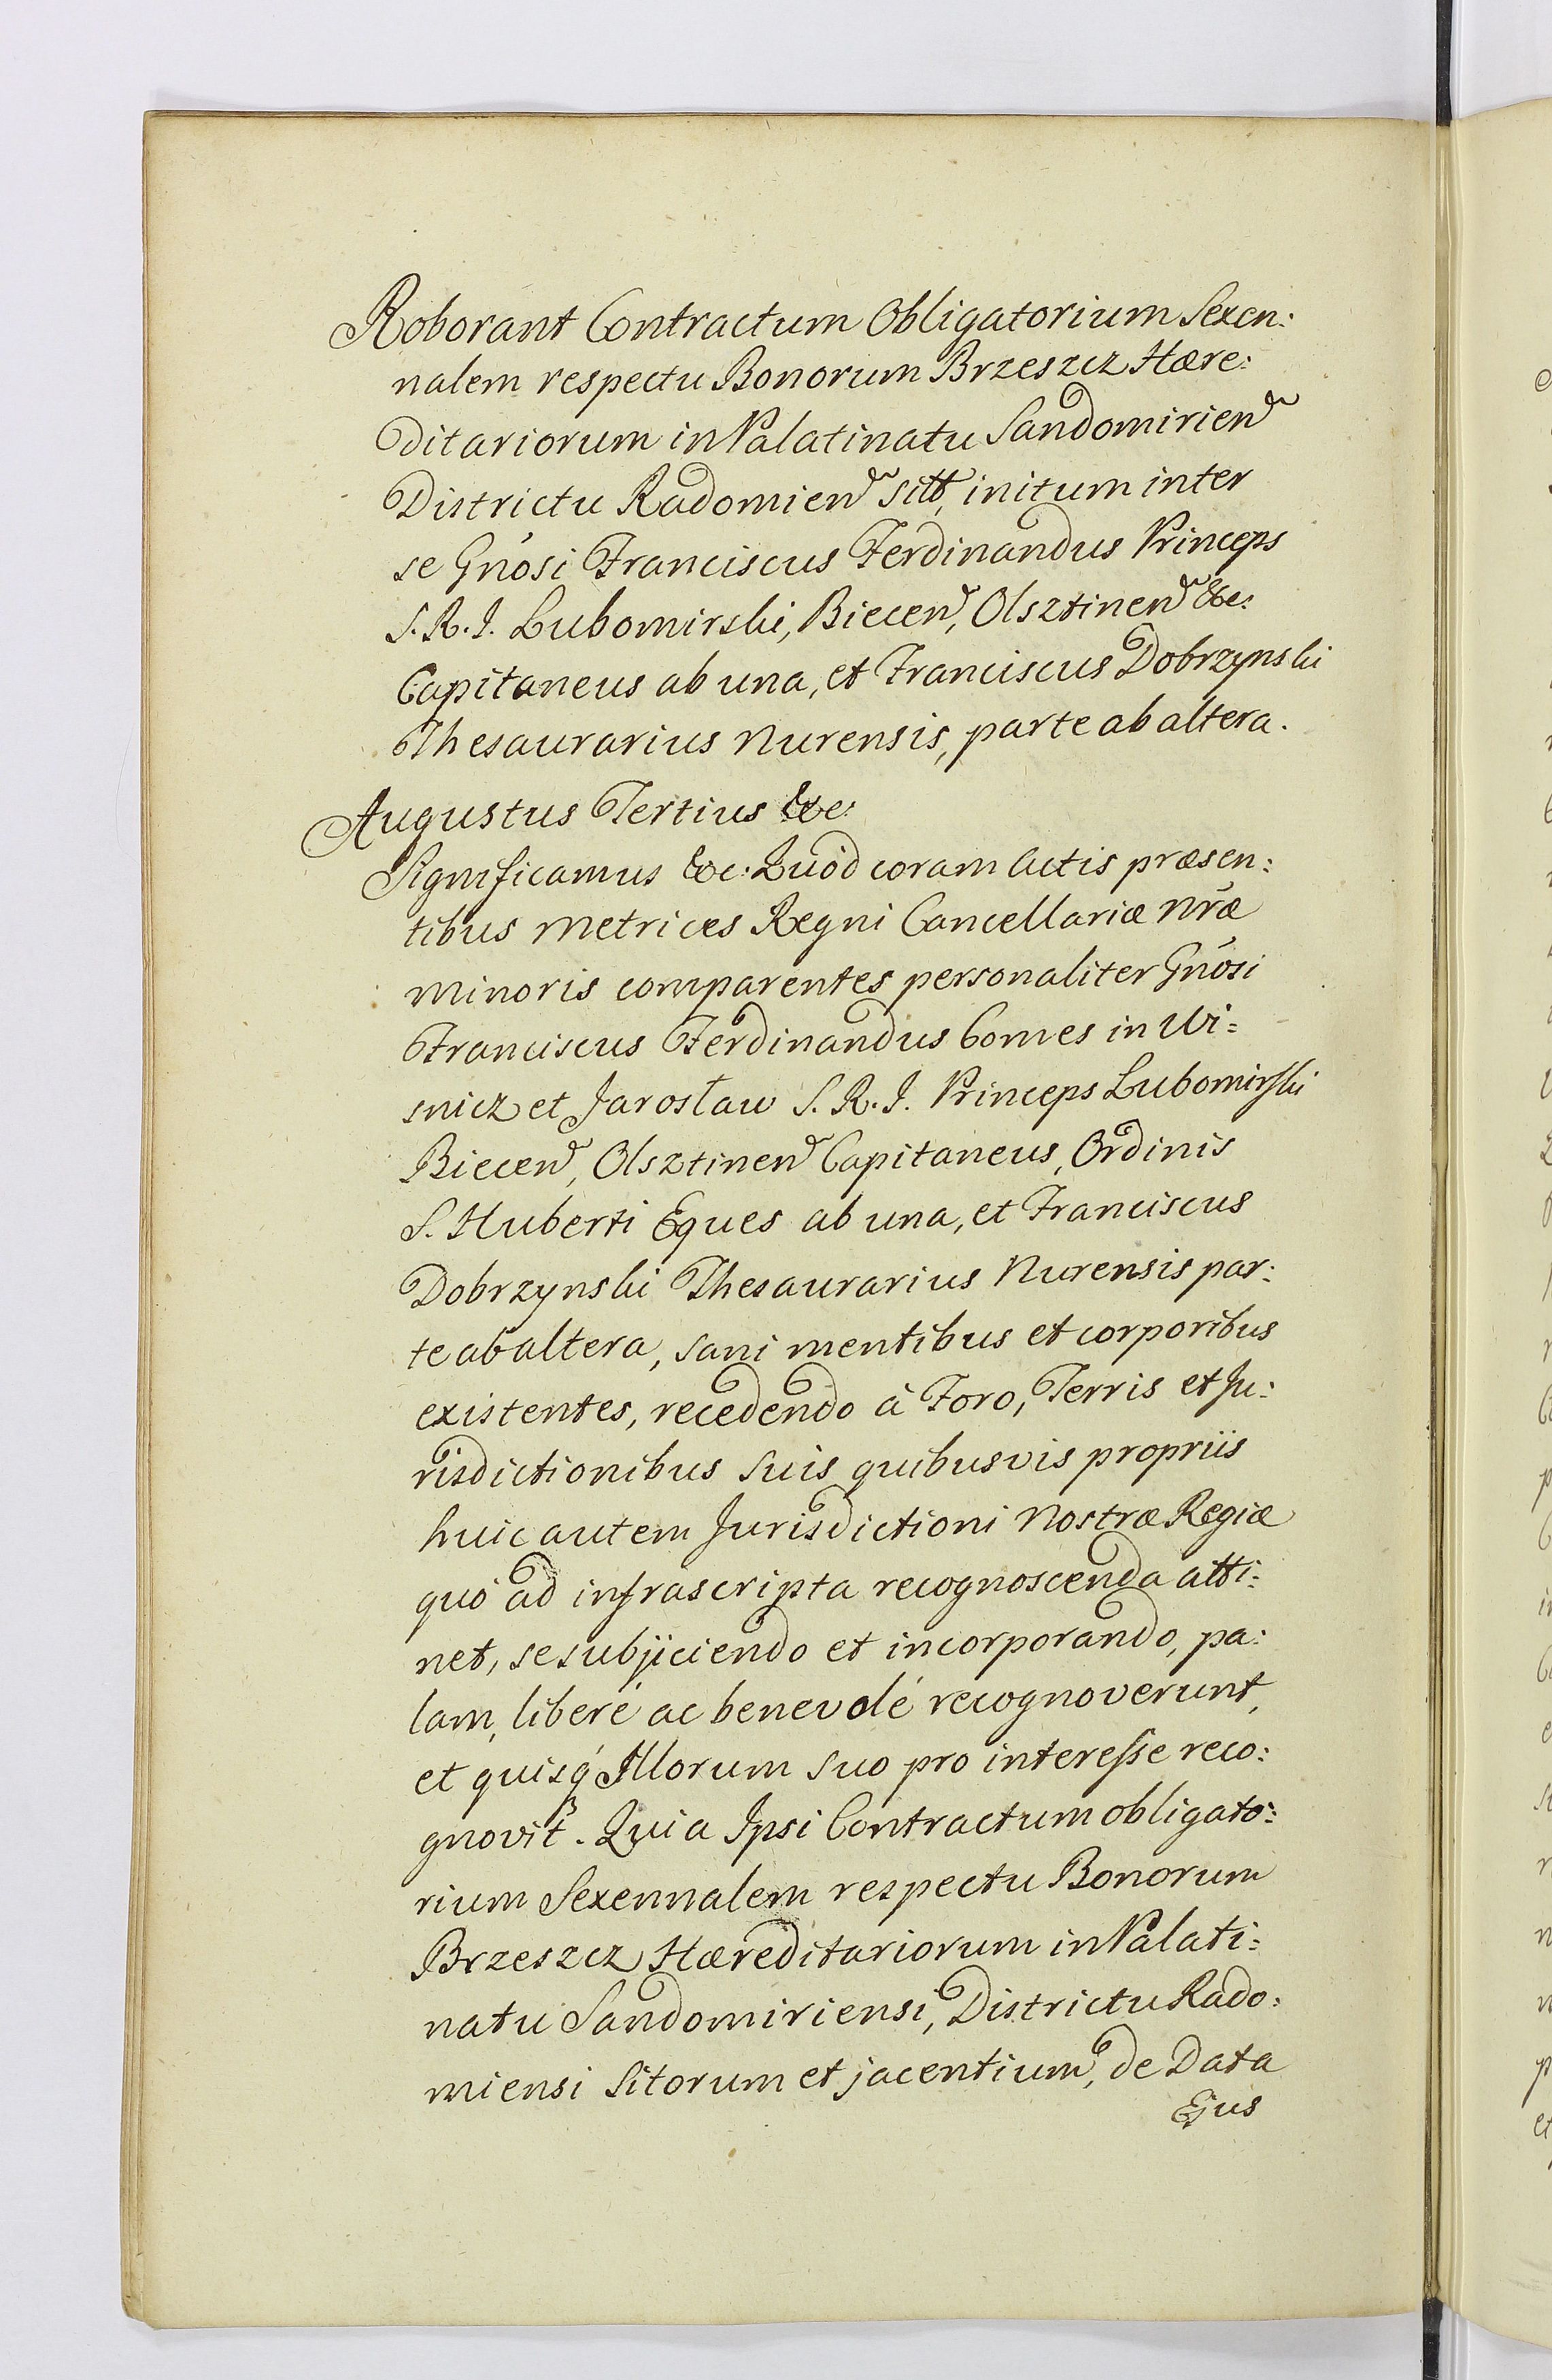 Roborant Contractum Obligatorium Sexen:
nalem respectu Bonorum Brzeszcz Hære:
ditariorum in Palatinatu Sandomirien
Districtu Radomien sitt, initum inter
se Gnósi Franciscus Ferdinandus Princeps
S. R. I. Lubomirski, Biecen, Olsztinen &c:
Capitaneus ab una, et Franciscus Dobrzynski
Thesaurarius Nurensis, parte ab altera.
Augustus Tertius &c:
Significamus &c: Quód coram Actis præsen:
tibus Metrices Regni Cancellariæ Nræ
Minoris comparentes personaliter Gnósi
Franciscus Ferdinandus Comes in Wi=
snicz et Jarosław S. R. I. Princeps Lubomirski
Biecen, Olsztinen Capitaneus, Ordinis
S. Huberti Eques ab una, et Franciscus
Dobrzynski Thesaurarius Nurensis par:
te ab altera, sani mentibus et corporibus
existentes, recedendo à Foro, Terris et Ju:
risdictionibus suis quibusvis propriis
huic autem Jurisdictioni Nostræ Regiæ
quó ad infrascripta recognoscenda atti:
net, se subjiciendo et incorporando, pa:
lam, liberé ac benevolé recognoverunt,
et quisq́ Illorum suo pro interesse reco:
gnovit. Quia Ipsi Contractum obligato:
rium Sexennalem respectu Bonorum
Brzeszcz Hæreditariorum in Palati:
natu Sandomiriensi, Districtu Rado:
miensi sitorum et jacentium, de Data
Ejus